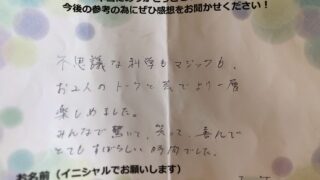 今後の参考の為にぜひ感想をお聞かせください！
不思議な科学もマジックも、
お2人のトークと芸でより一層
楽しめました。
みんなで驚いて、笑って、喜んで
とてもすばらしい時間でした。
お名前（イニシャルでお願いします）